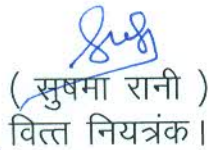 ( सुषमा रानी )
वित्त नियत्रंक।